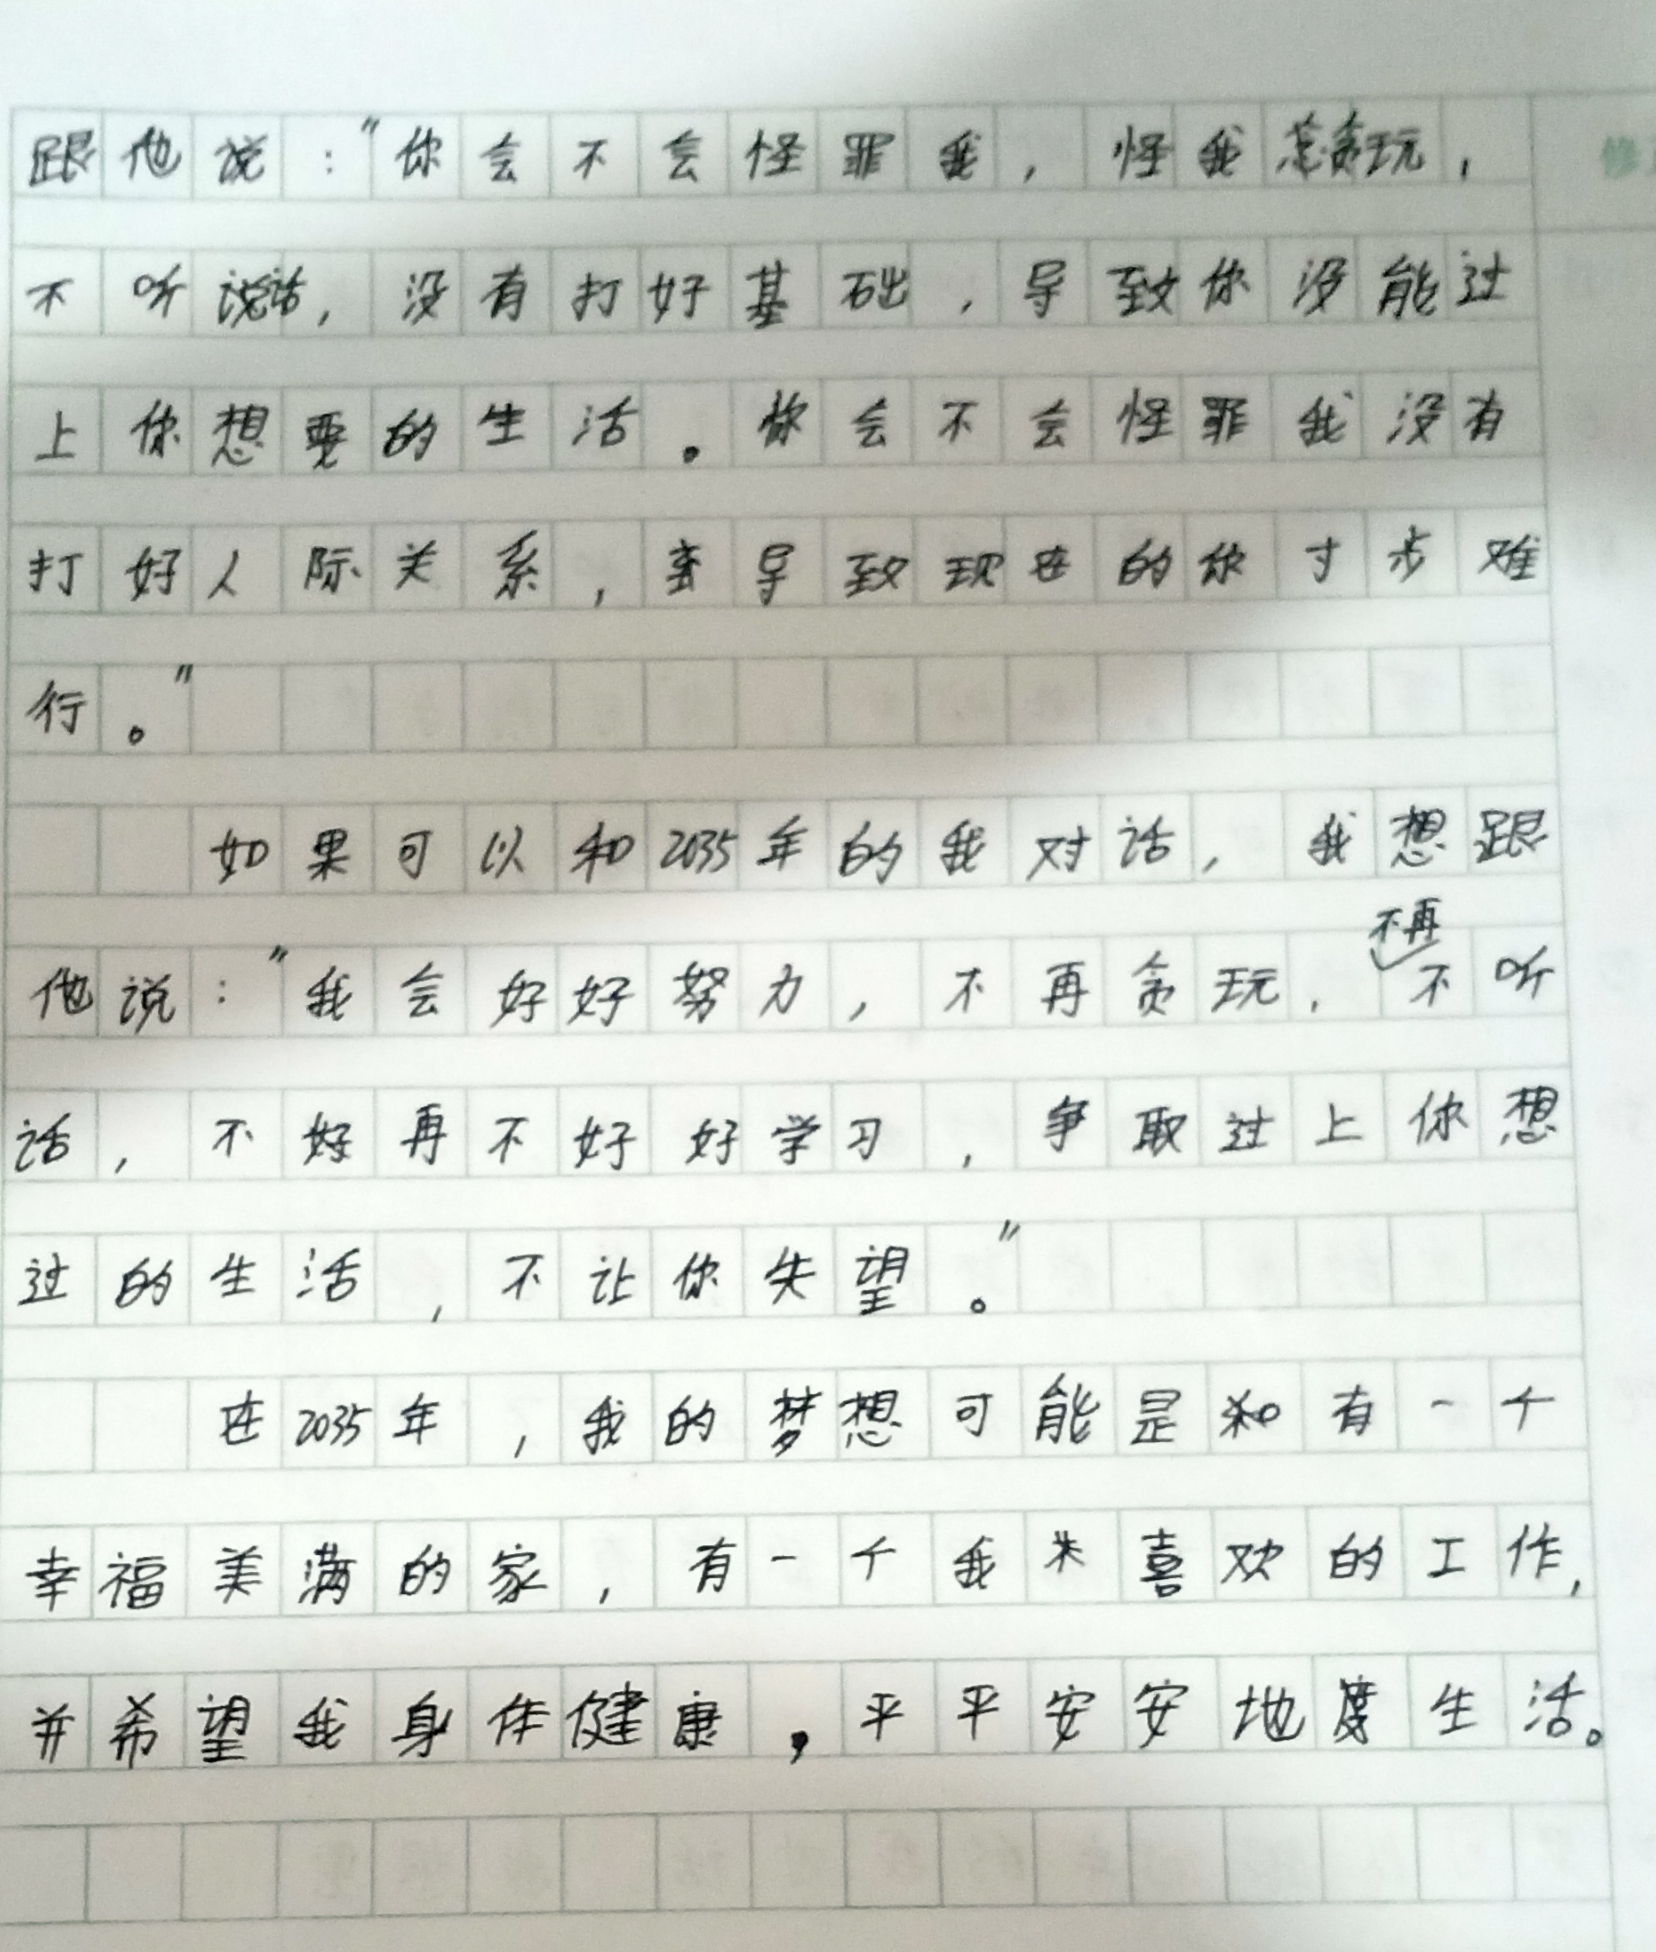 跟他说：“你会不会怪罪我，怪我总贪玩，
不听说话，没有打好基础，导致你没能过
上你想要的生活。你会不会怪罪我没有
打好人际关系，导致现在的你寸步难
行。”
如果可以和2035年的我对话，我想跟
他说：“我会好好努力，不再贪玩，不再不听
话，不好再不好好学习，争取过上你想
过的生活，不让你失望。”
在2035年，我的梦想可能是和有一个
幸福美满的家，有一个我喜欢的工作，
并希望我身体健康，平平安安地度生活。